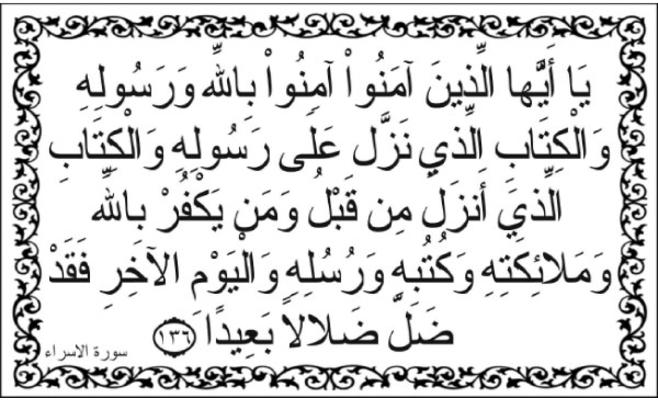 يَا أَيُّهَا الَّذِينَ آمَنُواْ آمِنُواْ بِاللّهِ وَرَسُولِهِ
وَالْكِتَابِ الَّذِي نَزَّلَ عَلَى رَسُولِهِ وَالْكِتَابِ
الَّذِيَ أَنزَلَ مِن قَبْلُ وَمَن يَكْفُرْ بِاللّهِ
وَمَلائِكَتِهِ وَكُتُبِهِ وَرُسُلِهِ وَالْيَوْمِ الآخِرِ فَقَدْ
ضَلَّ ضَلالاً بَعِيدًا ١٣٦ سورة الاسراء